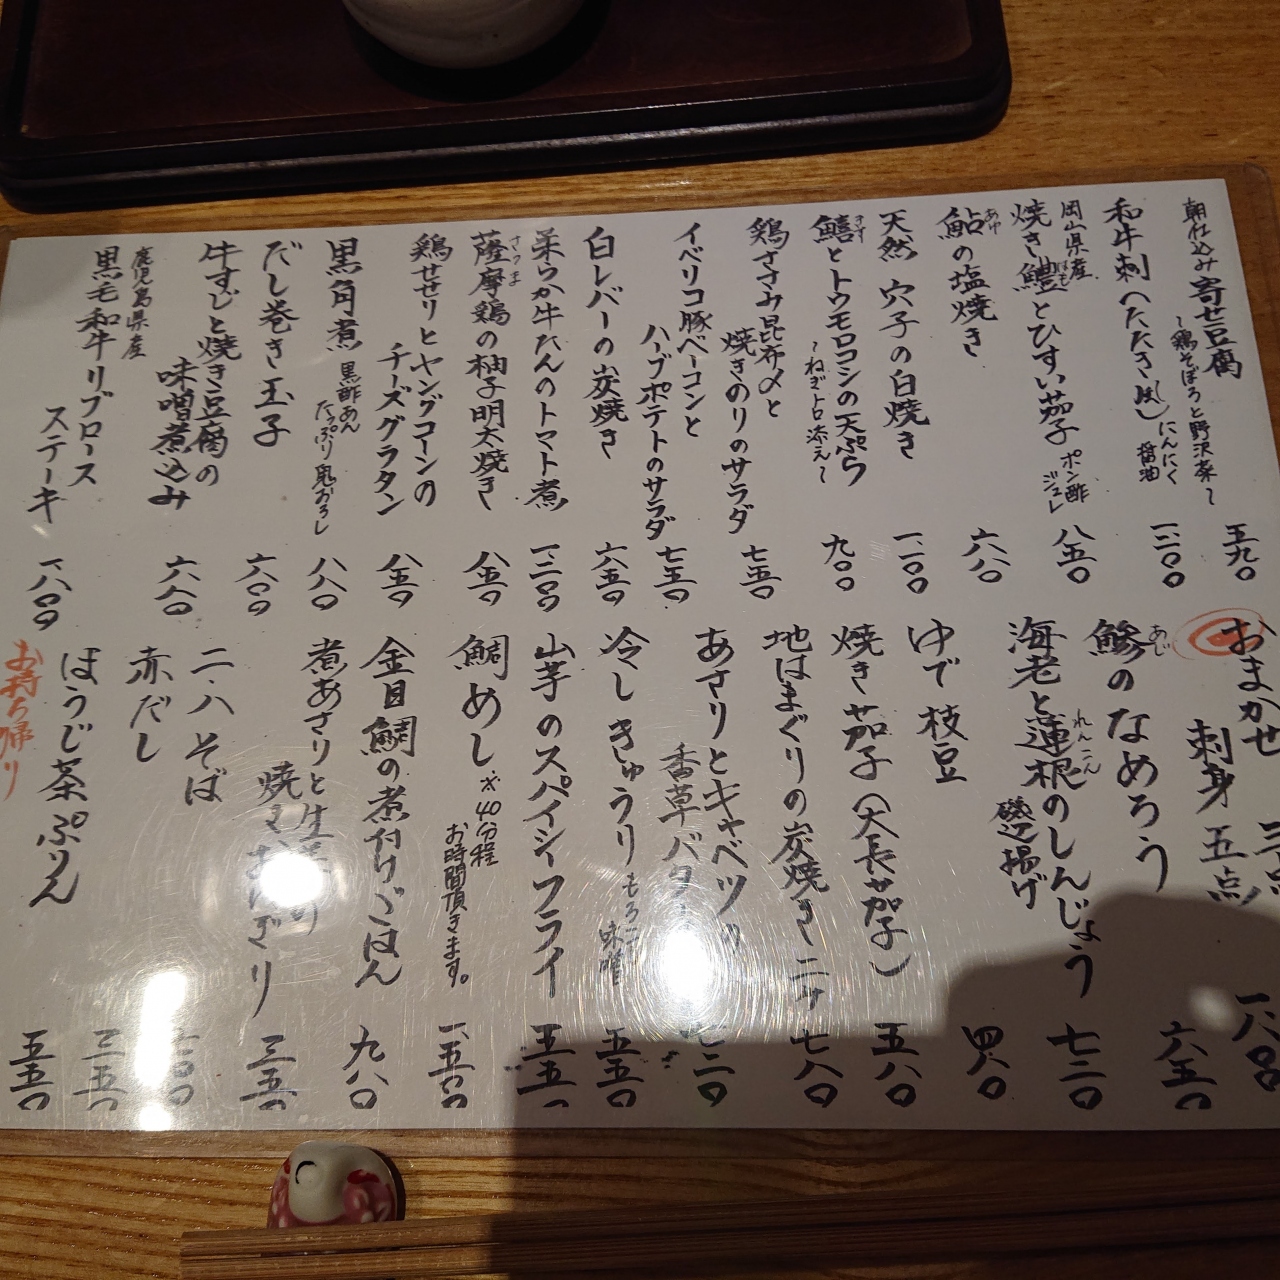 朝仕込み 寄せ豆腐
〜鶏そぼろと野沢菜〜
五九〇
和牛刺(たたき風)にんにく
醤油
一、二〇〇
岡山県産
焼き鱧とひすい茄子 ポン酢
ジュレ
はも
八五〇
鮎の塩焼き
あゆ
六八〇
天然 穴子の白焼き
一、二〇〇
鱚とトウモロコシの天ぷら
きす
〜ねぎトロ添え〜
九〇〇
鶏ささみ昆布〆と
焼きのりのサラダ
七五〇
イベリコ豚ベーコンと
ハーブポテトのサラダ
七五〇
白レバーの炭焼き
六五〇
柔らか牛たんのトマト煮
一、二〇〇
薩摩鶏の柚子明太焼き
さつま
八五〇
鶏せせりとヤングコーンの
チーズグラタン
八五〇
黒角煮 黒酢あん
たっぷり鬼おろし
八八〇
だし巻き玉子
六〇〇
牛すじと焼き豆腐の
味噌煮込み
六八〇
鹿児島県産
黒毛和牛リブロース
ステーキ
一、八〇〇
おまかせ 三点
刺身 五点
一、八〇〇
鯵のなめろう
あじ
六五〇
海老と蓮根のしんじょう
れんこん
磯辺揚げ
七二〇
ゆで枝豆
四八〇
焼き茄子(大長茄子)
五八〇
地はまぐりの炭焼き 二ケ
七八〇
あさりとキャベツの
香草バター
七二〇
冷しきゅうり もろこし
味噌
五五〇
山芋のスパイシーフライ
五五〇
鯛めし ※40分程
お時間頂きます。
一、五〇〇
金目鯛の煮付けごはん
九八〇
煮あさりと生
焼きおにぎり
三五〇
二・八そば
赤だし
三五〇
ほうじ茶ぷりん
五五〇
お持ち帰り